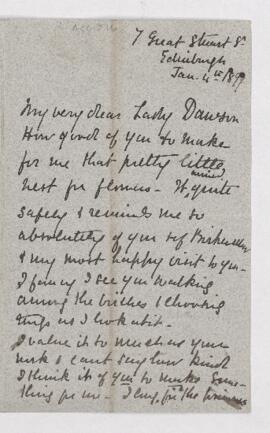 7 Great Stuart St
Edinburgh
Jan. 4th 1899
My very dear Lady Dawson
How good of you to make
for me that pretty little
nest for flowers - It
safely & reminds me so
absolutely of you of
& my most happy visit to you -
I fancy I see you walking
among the birches & choosing
twigs as I look at it -
I value it so much as your
work & can't say how kind
I think it of you to make some-
thing for me - I for the